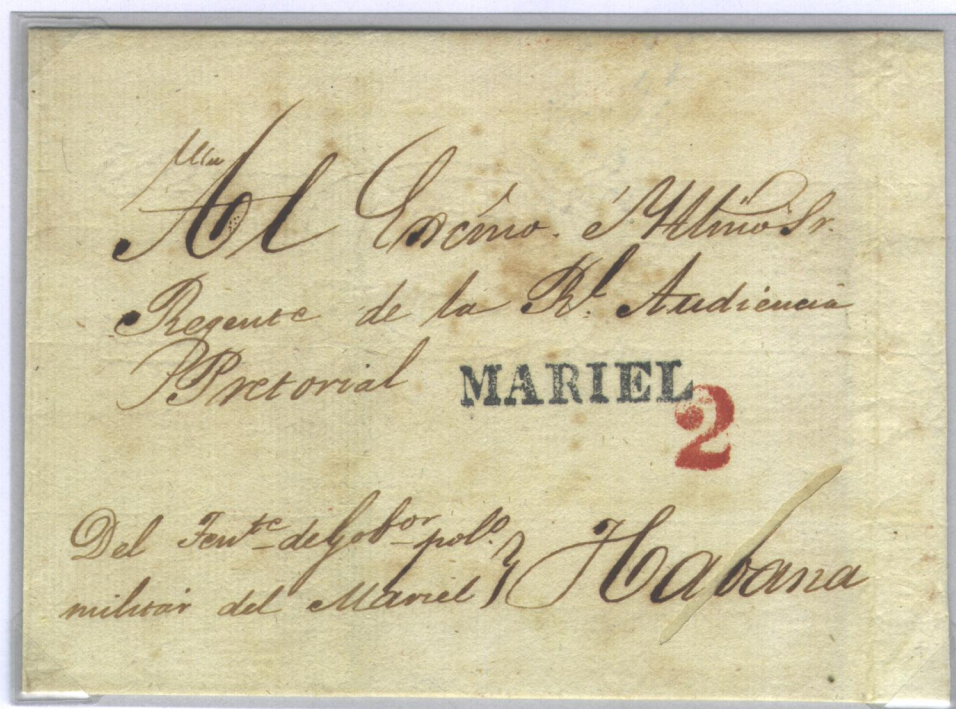 Al Excmo. é Yllmo Sr.
Regente de la Rl. Audiencia
Pretorial
MARIEL
2
Del Tente de Gobor polo.
militar del Mariel
Habana